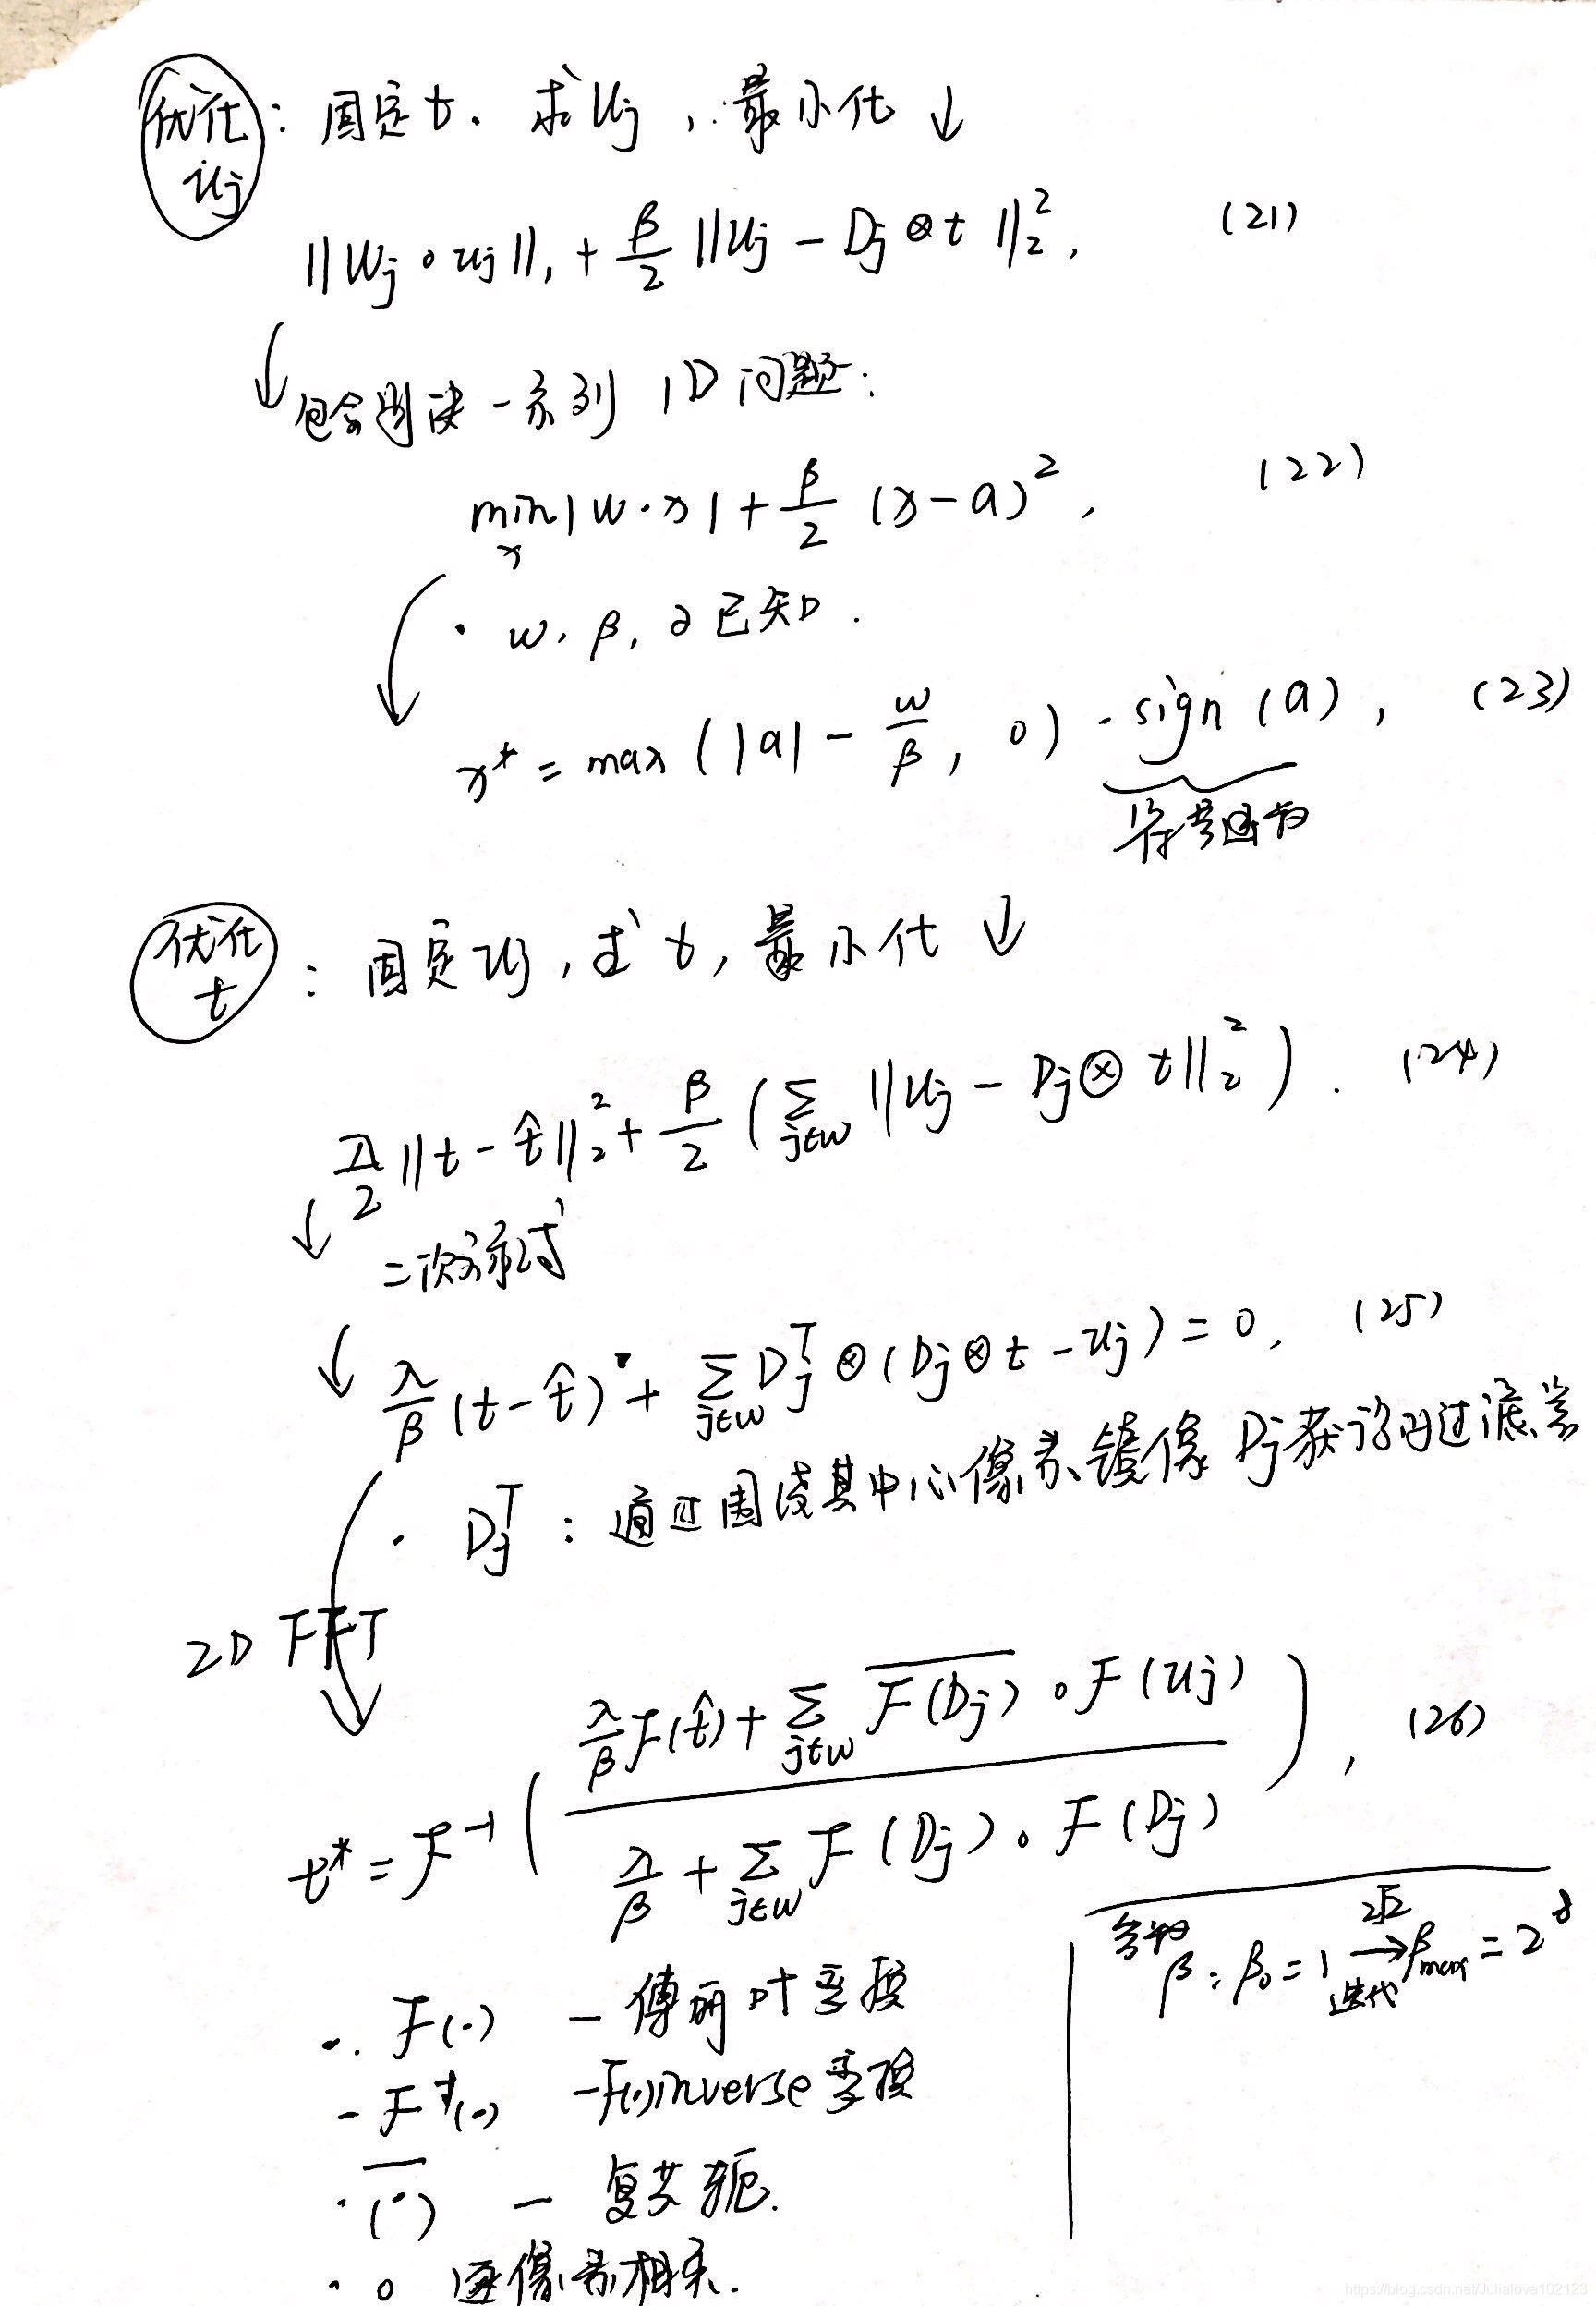 优化 uj : 固定 t. 求 uj , 最小化 ↓
||Wj ∘ uj||₁ + β/2 ||uj − Dj ⊗ t||₂², (21)
↓ 包含解决一系列 1D 问题:
min_x |w·x| + β/2 (x−a)², (22)
· w, β, a 已知.
x* = max(|a| − w/β, 0) · sign(a), (23)
符号函数
优化 t : 固定 uj, 求 t, 最小化 ↓
λ/2 ||t − t̂||₂² + β/2 (∑_{j∈w} ||uj − Dj ⊗ t||₂²). (24)
↓ 二次
↓ λ/β (t − t̂) + ∑_{j∈w} Dj^T ⊗ (Dj ⊗ t − uj) = 0, (25)
· Dj^T : 通过围绕其中心像素镜像 Dj 获得的过滤器
2D FFT
t* = F⁻¹( (λ/β F(t̂) + ∑_{j∈w} \overline{F(Dj)} ∘ F(uj)) / (λ/β + ∑_{j∈w} F(Dj) ∘ F(Dj)) ), (26)
参数
β: β₀ = 1 →(2√2 迭代) βmax = 2⁸
· F(·) — 傅丽叶变换
- F⁻¹(·) — F(·) inverse 变换
· \overline{(·)} — 复共轭.
· ∘ 逐像素相乘.
https://blog.csdn.net/Julialove102123